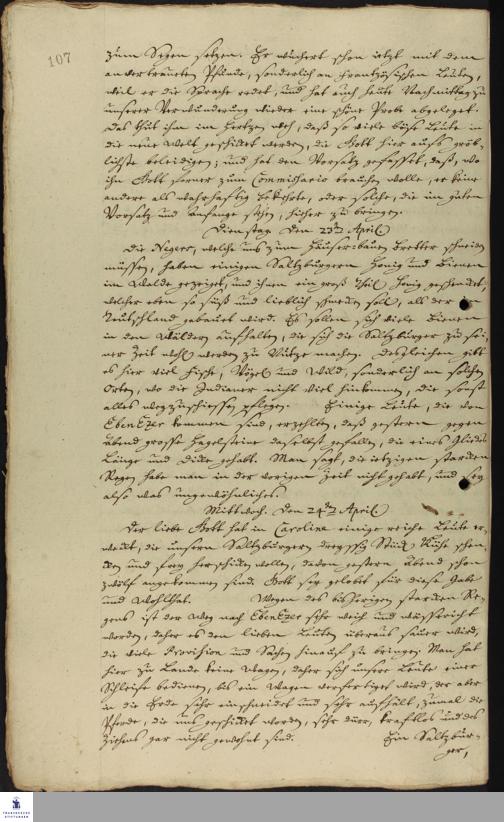 107
zum Segen setzen. Er wuchert schon ietzt mit dem
anvertraueten Pfunde, sonderlich an Frantzösischen Leuten,
weil er die Sprache redet, und hat auch heute Nachmittag zu
unserer Verwunderung wieder eine schöne Probe abgeleget.
Das thut ihm im Hertzen weh, daß so viele böse Leute in
die neue Welt geschicket werden, die Gott hier aufs gröb-
lichste beleidigen; und hat den Vorsatz gefasset, daß, wo
ihn Gott ferner zum Commissario brauchen wolle, er keine
andere als wahrhaftig bekehrte, oder solche, die im guten
Vorsatz und Anfange stehen, hieher zu bringen.
Dienstag. den 23ten April
Die Negers, welche uns zum Häuser-bauen Bretter schneiden
müssen, haben einigen Saltzburgern Honig und Bienen
im Walde gezeiget, und ihnen ein groß Theil Honig geschencket,
welcher eben so süß und lieblich schmecken soll, als der in
Teutschland gebauet wird. Es sollen sich viele Bienen
in den Wäldern aufhalten, die sich die Saltzburger zu sei-
ner Zeit wohl werden zu Nütze machen. Desgleichen gibt
es hier viel Fisch, Vögel und Wild, sonderlich an solchen
Orten, wo die Indianer nicht viel hinkommen, die sonst
alles wegzuschiessen pflegen. Einige Leute, die von
EbenEzer kommen sind, erzehlten, daß gestern gegen
Abend grosse Hagelsteine daselbst gefallen, die eines Gliedes
Länge und Dicke gehabt. Man sagt, die ietzigen starcken
Regen habe man in der vorigen Zeit nicht gehabt, und sey
also was ungewöhnliches.
Mittwoch. den 24ten April
Der liebe Gott hat in Caroline einige reiche Leute er-
weckt, die unsern Saltzburgern dreyssig Stück Kühe schen-
cken und frey herschicken wollen, davon gestern Abend schon
zwölf angekommen sind. Gott sey gelobet für diese Gabe
und Wohlthat. Wegen des bisherigen starcken Re-
gens ist der Weg nach EbenEzer sehr weich und wässericht
worden, daher es den lieben Leuten überaus sauer wird,
die viele Provision und Sachen hinauf zu bringen. Man hat
hier zu Lande keine Wagen, daher sich unsere Leute einer
Schleife bedienen, bis ein Wagen verfertiget wird, der aber
in die Erde sehr einschneidet und sehr aufhält, zumal die
Pferde, die uns geschicket worden, sehr dürr, kraftlos und des
Ziehens gar nicht gewohnt sind. Ein Saltzbur-
ger,
FRANCKESCHE
STIFTUNGEN